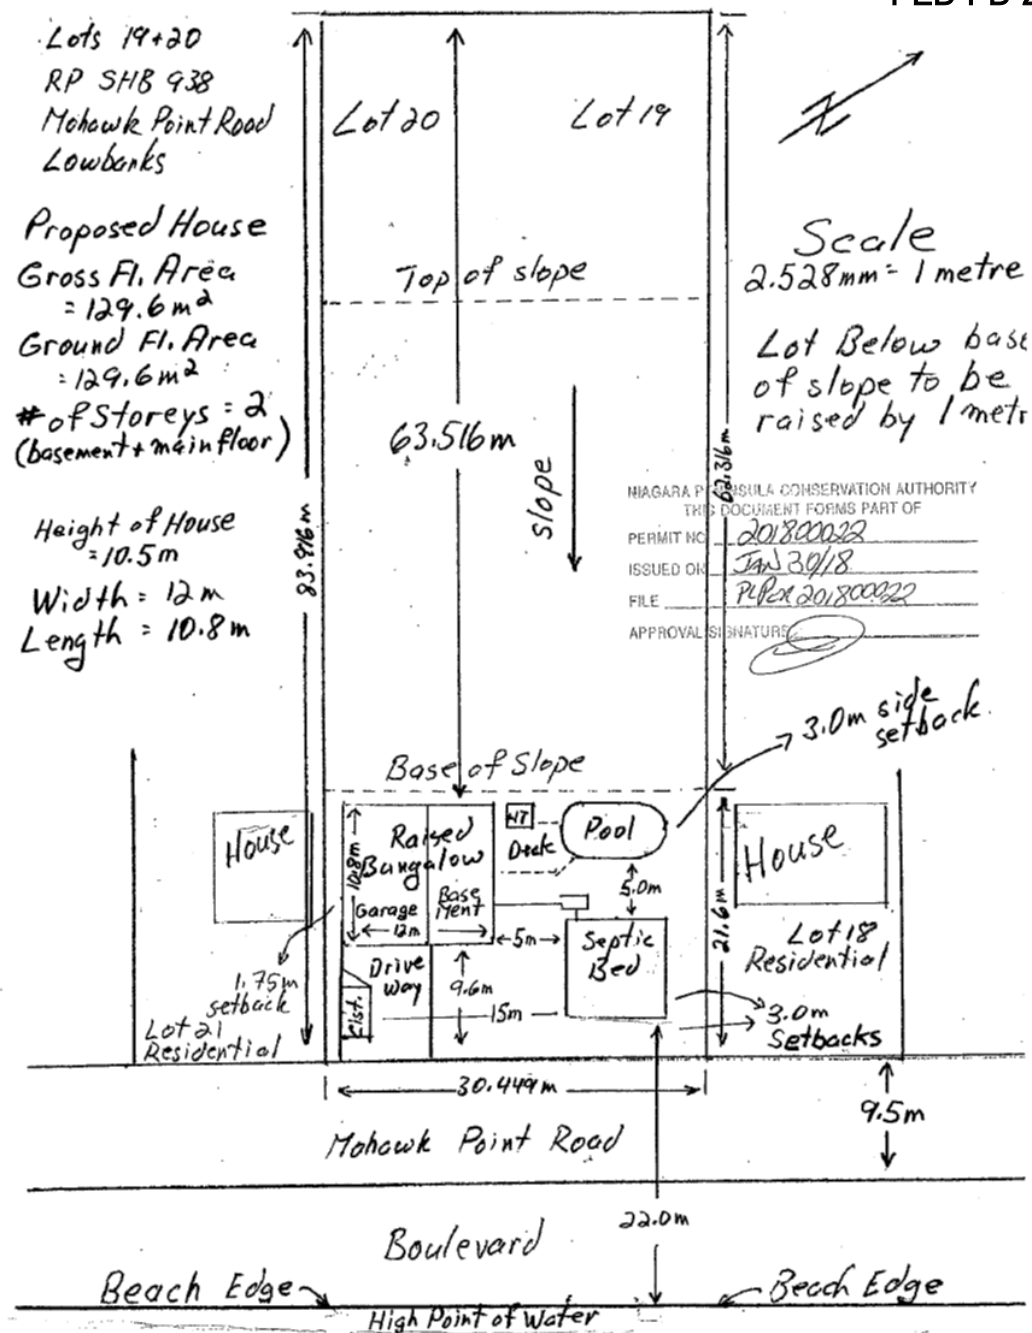 Lots 19+20
RP SHB 938
Mohawk Point Road
Lowbanks
Proposed House
Gross Fl. Area
= 129.6 m²
Ground Fl. Area
= 129.6 m²
# of Storeys = 2
(basement + main floor)
Height of House
= 10.5 m
Width = 12 m
Length = 10.8 m
Lot 20
Lot 19
Scale
2.528mm = 1 metre
Lot Below base
of slope to be
raised by 1 metr
Top of slope
63.516m
slope
83.916m
62.316m
NIAGARA PENINSULA CONSERVATION AUTHORITY
THIS DOCUMENT FORMS PART OF
PERMIT NO 201800022
ISSUED ON JAN 30/18
FILE
APPROVAL SIGNATURE
3.0m side
setback.
Base of Slope
House
Raised
Bungalow
10.8m
Garage
Base
ment
12m
HT
Deck
Pool
5.0m
House
21.6m
5m
Septic
Bed
Lot 18
Residential
1.75m
setback
Lot 21
Residential
Drive
way
Cist.
9.6m
15m
3.0m
Setbacks
30.449m
9.5m
Mohawk Point Road
22.0m
Boulevard
Beach Edge
Beach Edge
High Point of Water